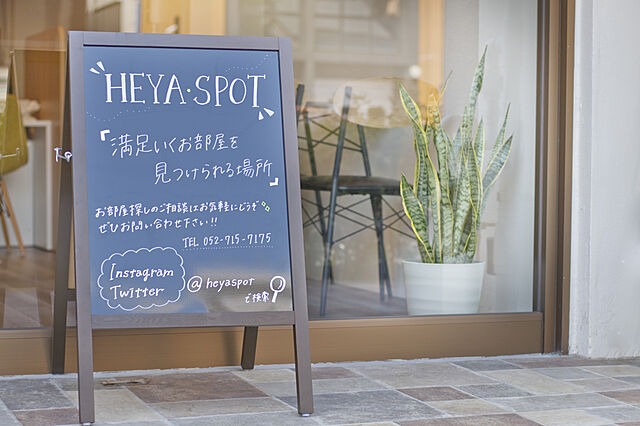 HEYA·SPOT
「満足いくお部屋を
見つけられる場所」
お部屋探しのご相談はお気軽にどうぞ
ぜひお問い合わせ下さい!!
TEL 052-715-7175
Instagram
Twitter
@heyaspot
で検索